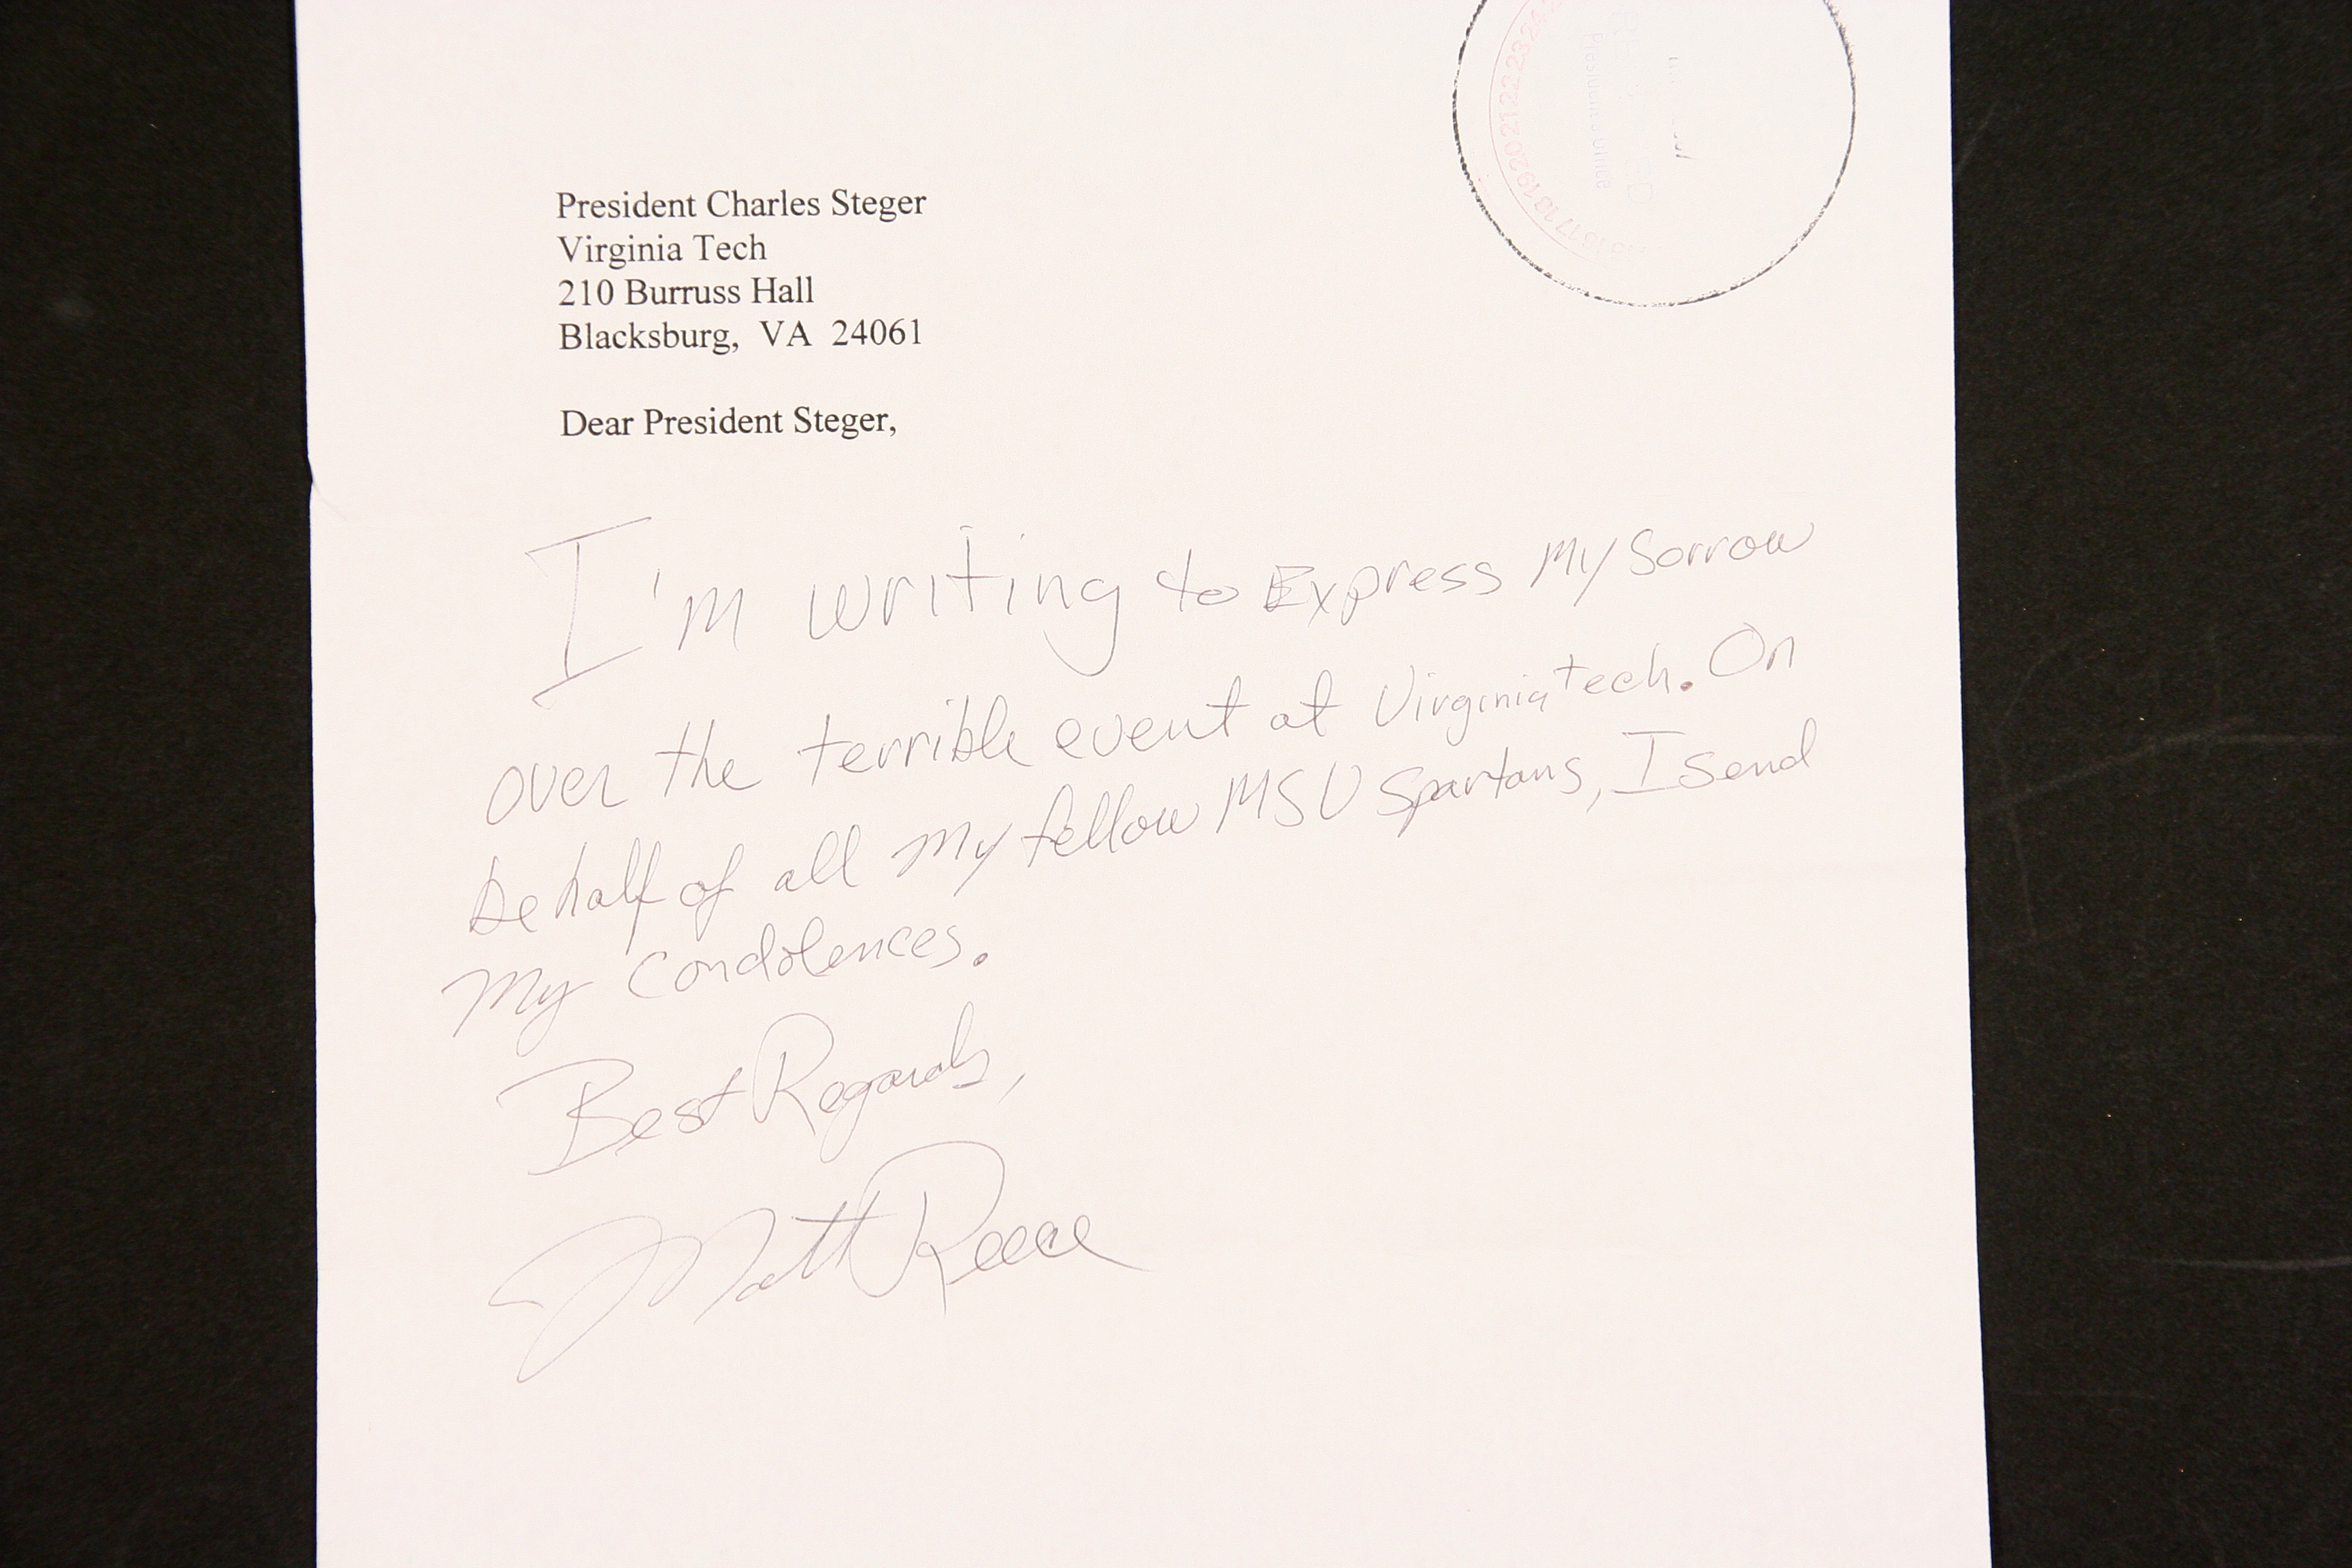 President Charles Steger
Virginia Tech
210 Burruss Hall
Blacksburg, VA 24061
Dear President Steger,
I'm writing to Express My Sorrow
over the terrible event at Virginia tech. On
behalf of all My fellow MSU Spartans, I send
My Condolences.
Best Regards,
Matt Reece
President's Office